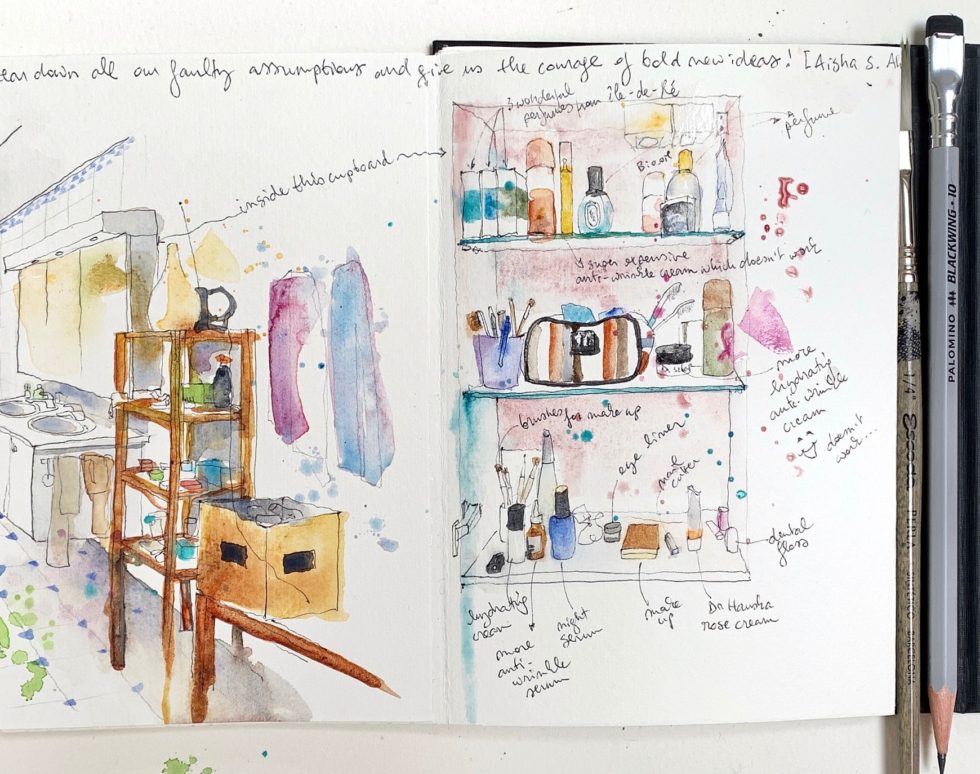 down all our faulty assumptions and give us the courage of bold new ideas! [Aisha S. A
inside this cupboard
3 wonderful
perfumes from Île-de-Ré
perfume
Bio oil
super expensive
anti-wrinkle cream which doesn't work
more
hydrating
anti-wrinkle
cream
doesn't
work...
brushes for make up
eye liner
nail
cutter
dental
floss
hydrating
cream
more
anti-
wrinkle
serum
night
serum
make
up
Dr. Hauschka
rose cream
PALOMINO BLACKWING-1D